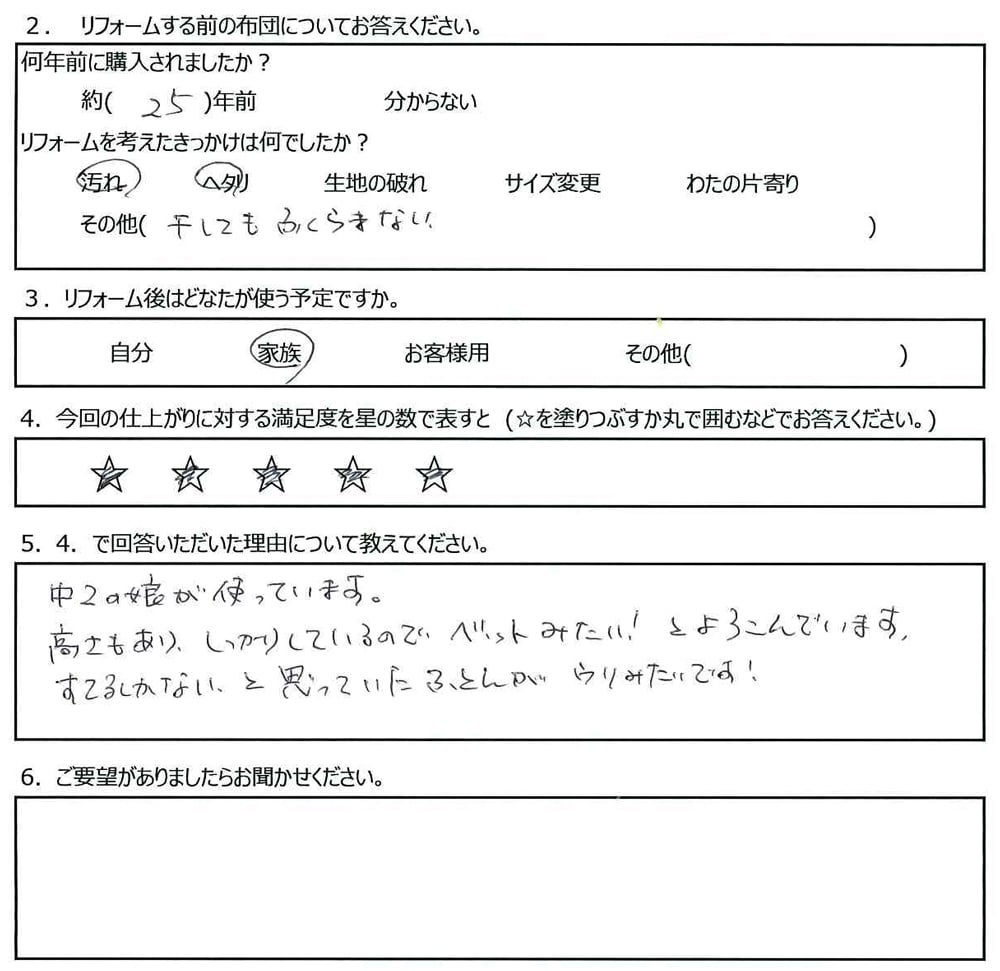 ２． リフォームする前の布団についてお答えください。
何年前に購入されましたか？
約( 25 )年前 分からない
リフォームを考えたきっかけは何でしたか？
汚れ ヘタリ 生地の破れ サイズ変更 わたの片寄り
その他( 干してもふくらまない )
３．リフォーム後はどなたが使う予定ですか。
自分 家族 お客様用 その他( )
4．今回の仕上がりに対する満足度を星の数で表すと（☆を塗りつぶすか丸で囲むなどでお答えください。)
☆ ☆ ☆ ☆ ☆
5．4．で回答いただいた理由について教えてください。
中2の娘が使っています。
高さもあり、しっかりしているので ベットみたい! とよろこんでいます。
すてるしかない、と思っていたふとんが みたいです!
6．ご要望がありましたらお聞かせください。